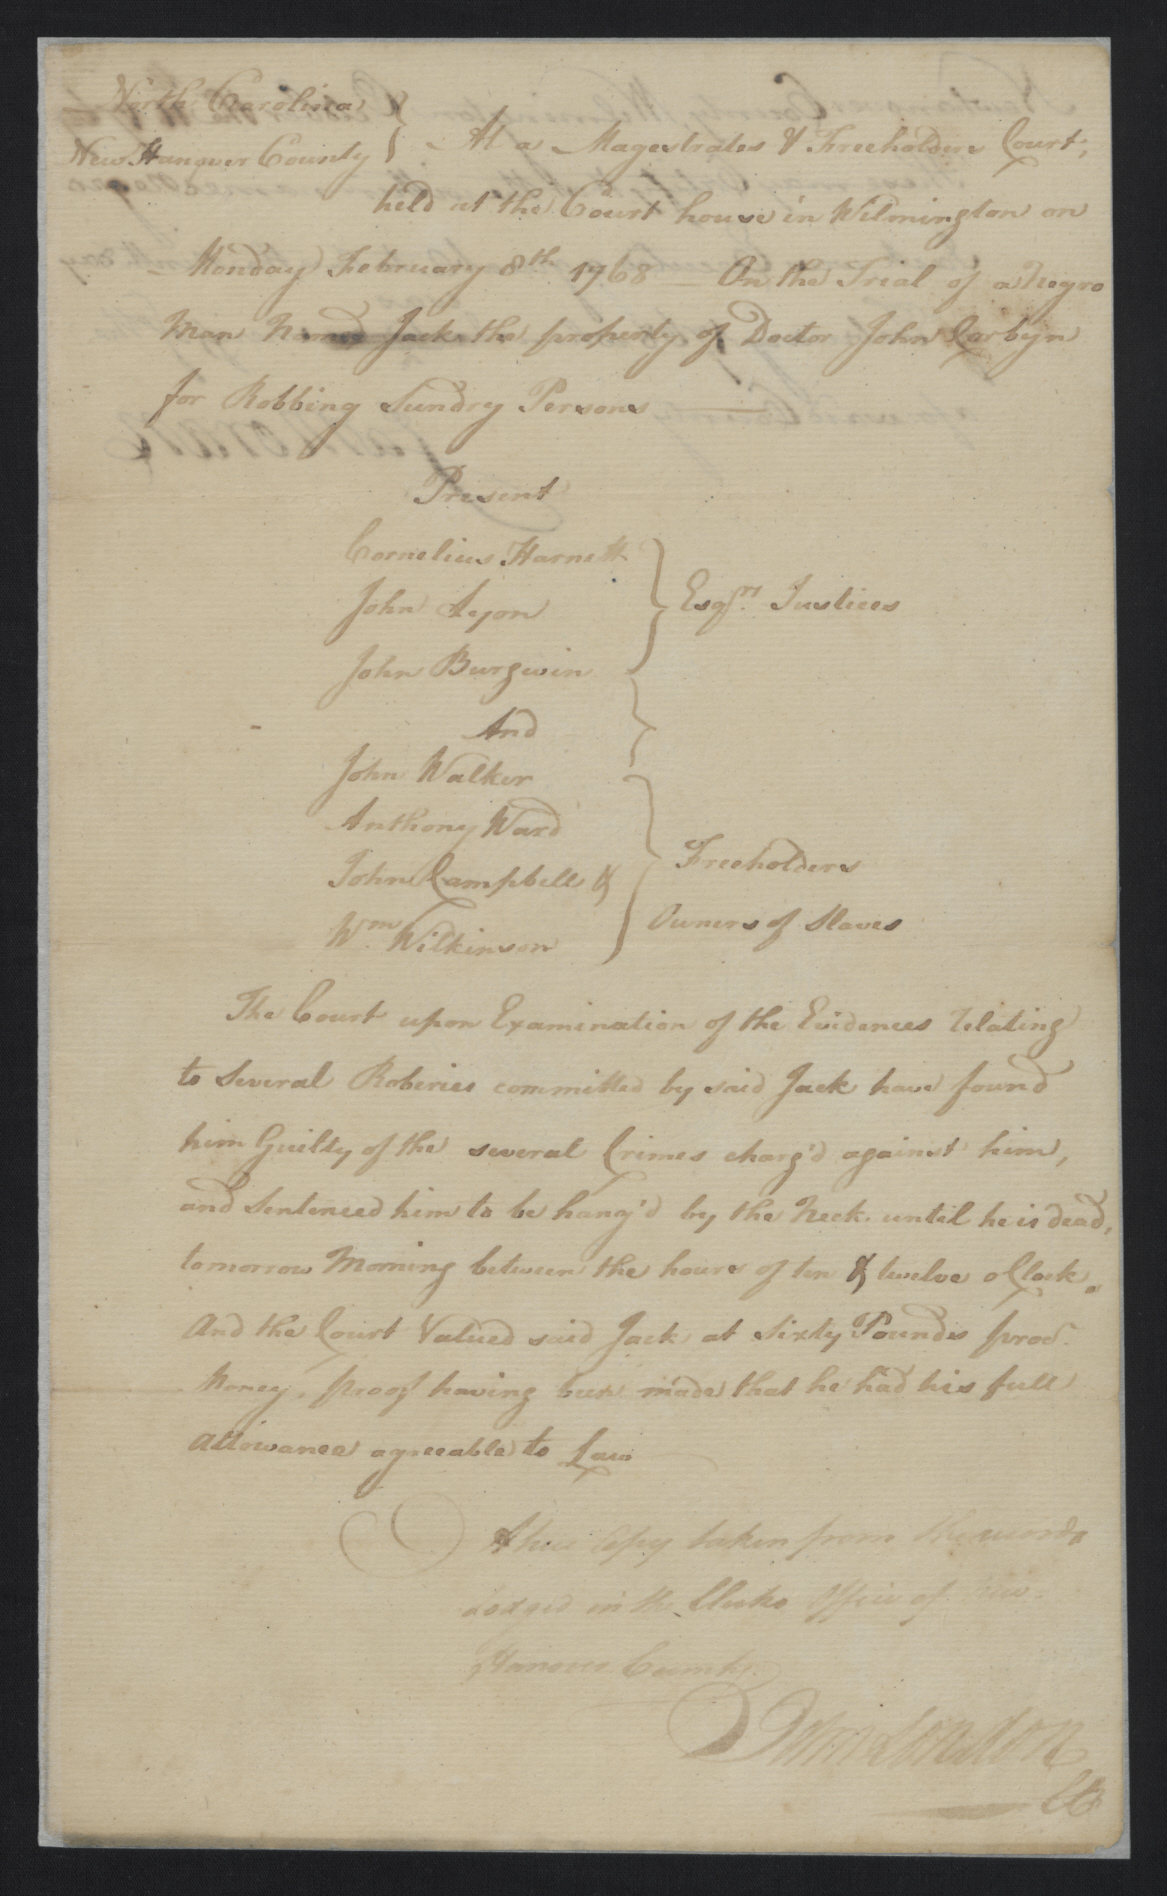 North Carolina
New Hanover County } At a Magestrates & Freeholders Court,
held at the Court house in Wilmington on
Monday February 8th 1768 — On the Trial of a Negro
Man Named Jack the property of Doctor John Corbyn
for Robbing Sundry Persons —
Present
Cornelius Harnett
John Lyon } Esqrs. Justices
John Burgwin
And
John Walker
Anthony Ward
John Campbell & } Freeholders
Wm. Wilkinson Owners of Slaves
The Court upon Examination of the Evidences relating
to Several Roberies committed by said Jack have found
him Guilty of the several Crimes charg'd against him,
and Sentenced him to be hang'd by the Neck until he is dead,
tomorrow Morning between the hours of ten & twelve oClock.
And the Court Valued said Jack at Sixty Pounds proc.
Money, proof having been made that he had his full
allowance agreeable to Law
A true Copy taken from the records
Lodged in the Clerks Office of New
Hanover County.
John London
Clk